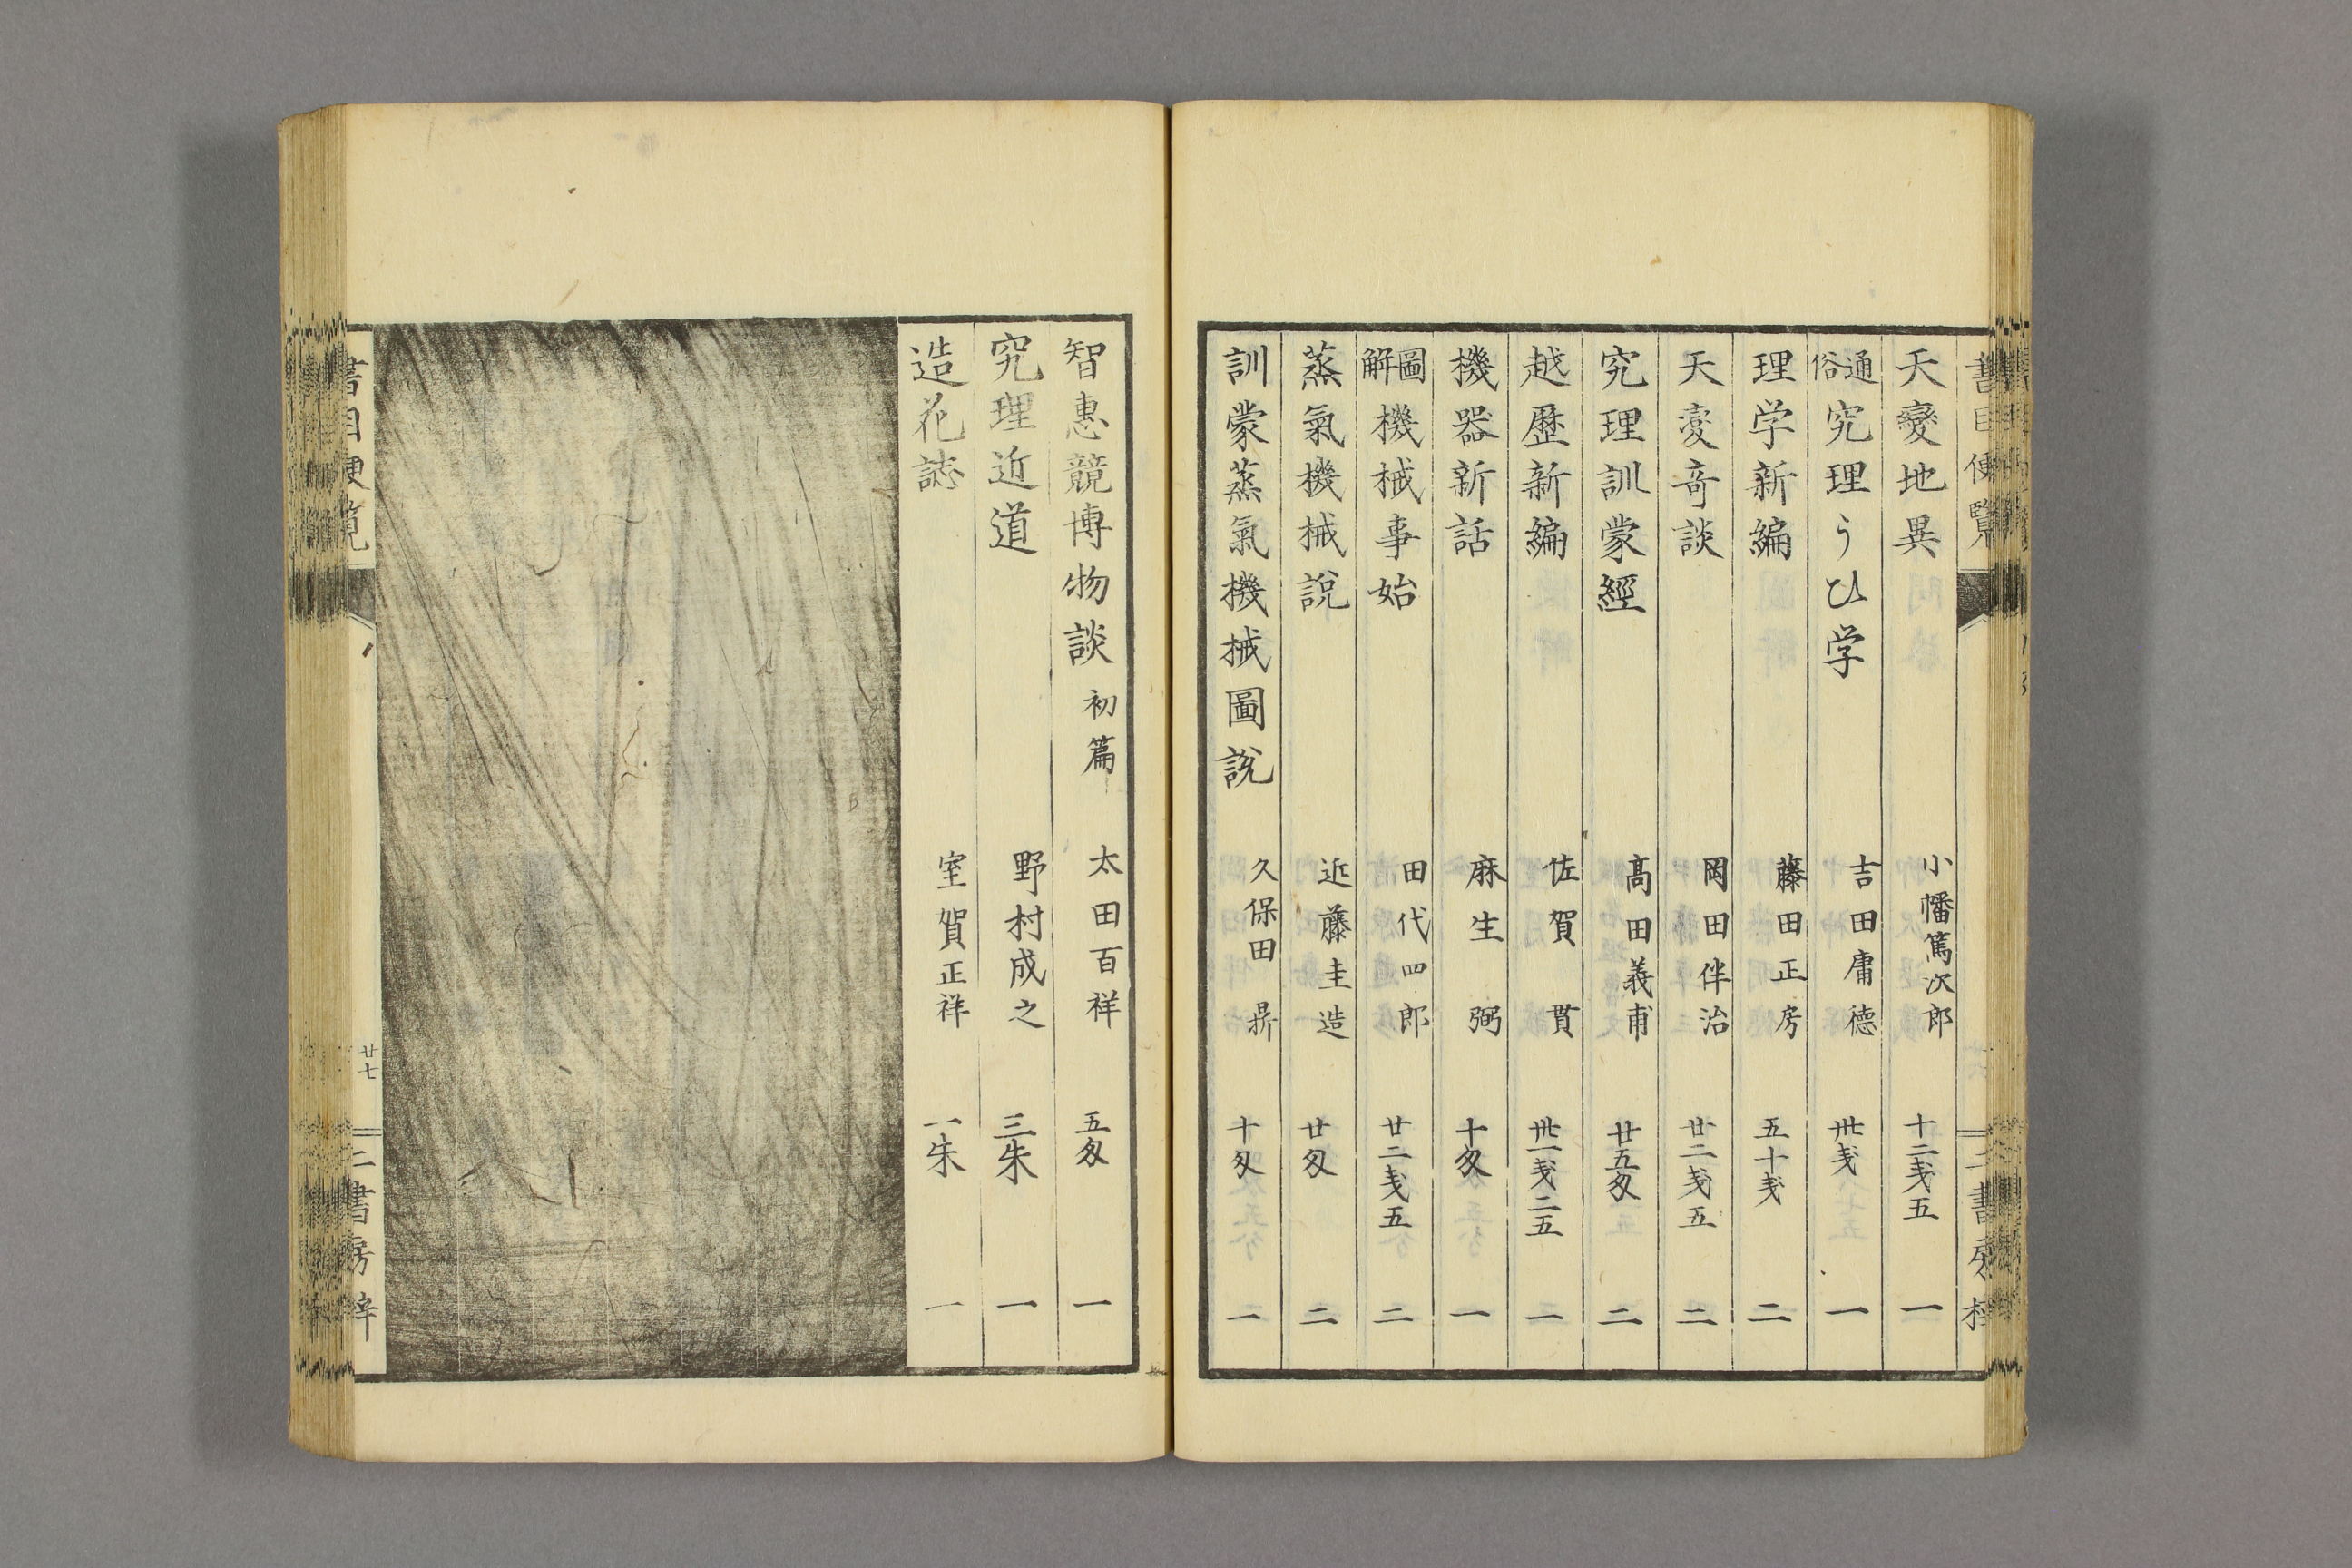 天變地異 小幡篤次郎 十二戔五 一
通俗 究理うひ学 吉田庸徳 卅戔 一
理学新編 藤田正房 五十戔 二
天変奇談 岡田伴治 廿二戔五 二
究理訓蒙經 髙田義甫 廿五匁 二
越歴新編 佐賀貫 卅一戔二五 二
機器新話 麻生弼 十匁 一
圖解 機械事始 田代四郎 廿二戔五 二
蒸氣機械説 近藤圭造 廿匁 二
訓蒙蒸氣機械圖説 久保田鼎 十匁 一
智惠競博物談 初篇 太田百祥 五匁 一
究理近道 野村成之 三朱 一
造花誌 室賀正祥 一朱 一
書目便覧 廿七 二書房梓